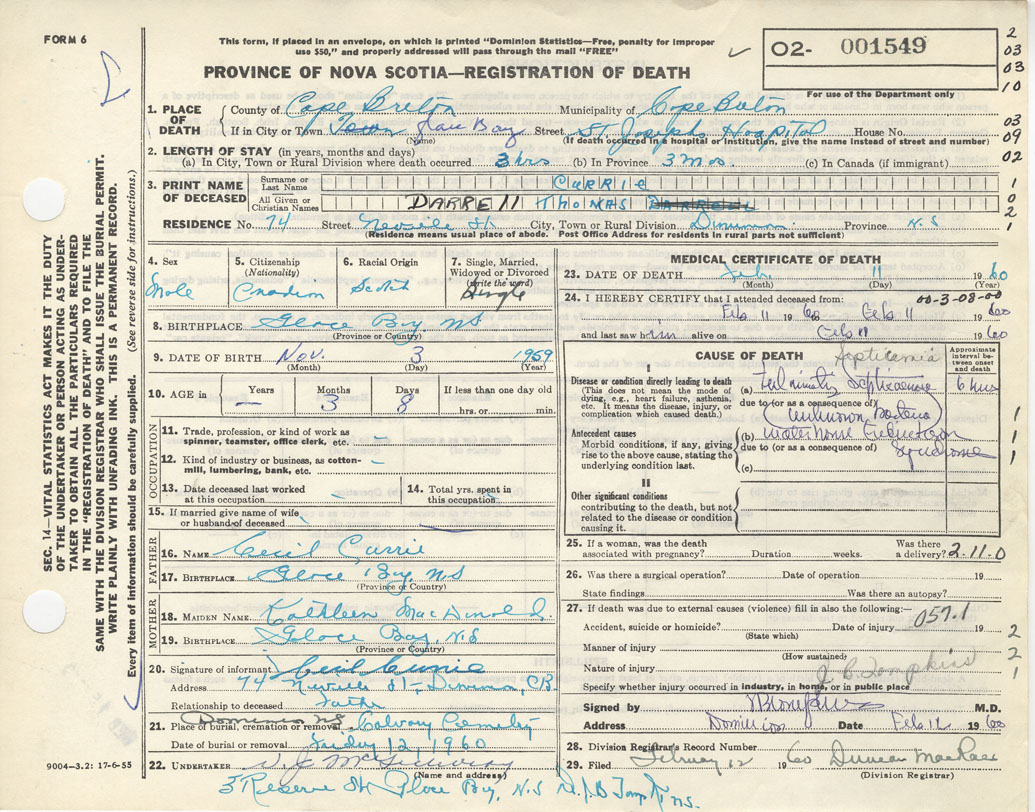 FORM 6
This form, if placed in an envelope, on which is printed "Dominion Statistics—Free, penalty for improper
use $50," and properly addressed will pass through the mail "FREE"
PROVINCE OF NOVA SCOTIA—REGISTRATION OF DEATH
02- 001549
For use of the Department only
2
03
03
10
03
09
02
1
0
2
1
SEC. 14—VITAL STATISTICS ACT MAKES IT THE DUTY
OF THE UNDERTAKER OR PERSON ACTING AS UNDER-
TAKER TO OBTAIN ALL THE PARTICULARS REQUIRED
IN THE "REGISTRATION OF DEATH" AND TO FILE THE
SAME WITH THE DIVISION REGISTRAR WHO SHALL ISSUE THE BURIAL PERMIT.
WRITE PLAINLY WITH UNFADING INK. THIS IS A PERMANENT RECORD.
Every item of information should be carefully supplied. (See reverse side for instructions.)
1. PLACE OF DEATH County of Cape Breton Municipality of Cape Breton
If in City or Town Town Glace Bay Street St. Josephs Hospital House No.
(Name) (If death occurred in a hospital or institution, give the name instead of street and number)
2. LENGTH OF STAY (in years, months and days)
(a) In City, Town or Rural Division where death occurred 3 hrs (b) In Province 3 Mos. (c) In Canada (if immigrant)
3. PRINT NAME OF DECEASED Surname or Last Name CURRIE
All Given or Christian Names DARRELL THOMAS DARRELL
RESIDENCE No. 74 Street Neville St. City, Town or Rural Division Dominion Province N.S
(Residence means usual place of abode. Post Office Address for residents in rural parts not sufficient)
4. Sex Male
5. Citizenship (Nationality) Canadian
6. Racial Origin Scotch
7. Single, Married, Widowed or Divorced (write the word) Single
8. BIRTHPLACE Glace Bay NS
(Province or Country)
9. DATE OF BIRTH Nov. 3 1959
(Month) (Day) (Year)
10. AGE in Years — Months 3 Days 8 If less than one day old hrs. or min.
OCCUPATION
11. Trade, profession, or kind of work as
spinner, teamster, office clerk, etc. –
12. Kind of industry or business, as cotton-
mill, lumbering, bank, etc. –
13. Date deceased last worked
at this occupation
14. Total yrs. spent in
this occupation
15. If married give name of wife
or husband of deceased
FATHER
16. NAME Cecil Currie
17. BIRTHPLACE Glace Bay, N.S
(Province or Country)
MOTHER
18. MAIDEN NAME Kathleen MacDonald
19. BIRTHPLACE Glace Bay, N.S
(Province or Country)
20. Signature of informant Cecil Currie
Address 74 Neville St., Dominion, C.B.
Relationship to deceased Father
21. Place of burial, cremation or removal Dominion NS Calvary Cemetery
Date of burial or removal Friday 12, 1960
22. UNDERTAKER
(Name and address)
3 Reserve St Glace Bay, N.S
9004-3.2: 17-6-55
MEDICAL CERTIFICATE OF DEATH
23. DATE OF DEATH Feb. 11 1960
(Month) (Day) (Year)
24. I HEREBY CERTIFY that I attended deceased from: 00-3-08-00
Feb 11 1960 Feb 11 1960
and last saw him alive on Feb 11 1960
CAUSE OF DEATH Septicemia
Approximate interval between onset and death
I
Disease or condition directly leading to death
(This does not mean the mode of
dying, e.g., heart failure, asthenia,
etc. It means the disease, injury, or
complication which caused death.)
(a) Fulminating Septicaemia 6 hrs
due to (or as a consequence of)
(Unknown Bacteria)
Antecedent causes
Morbid conditions, if any, giving
rise to the above cause, stating the
underlying condition last.
(b) Waterhouse Friderichsen
due to (or as a consequence of) Syndrome
(c)
II
Other significant conditions
contributing to the death, but not
related to the disease or condition
causing it.
1
1
1
25. If a woman, was the death
associated with pregnancy? Duration weeks. Was there a delivery? 2-11-0
26. Was there a surgical operation? Date of operation 19
State findings Was there an autopsy?
27. If death was due to external causes (violence) fill in also the following:—
Accident, suicide or homicide? Date of injury 057.1 19
(State which)
Manner of injury
(How sustained)
Nature of injury J. B. Tompkins
Specify whether injury occurred in industry, in home, or in public place
2
2
1
Signed by M.D.
Address Dominion Date Feb 12 1960
28. Division Registrar's Record Number
29. Filed February 12 1960 Duncan MacRae
(Division Registrar)